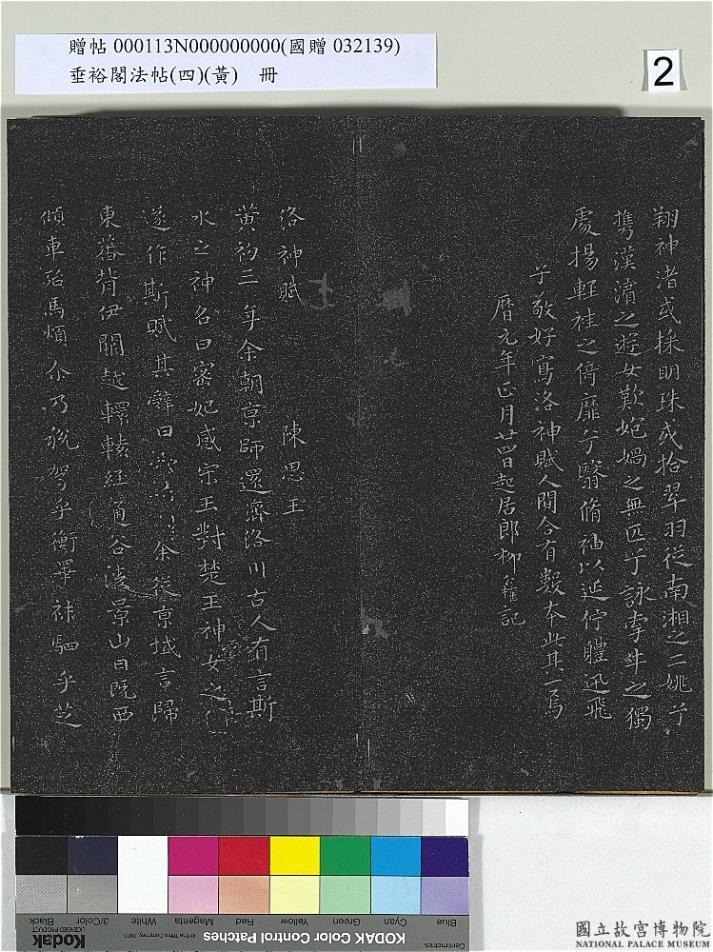 贈帖 000113N000000000(國贈 032139)
垂裕閣法帖(四)(黃) 冊
2
翔神渚或採明珠或拾翠羽從南湘之二姚兮
攜漢濱之遊女歎匏媧之無匹兮詠牽牛之獨
處揚輕袿之倚靡兮翳脩袖以延佇體迅飛
子敬好寫洛神賦人間合有數本此其一焉
曆元年正月廿四日起居郎柳 記
洛神賦 陳思王
黃初三年余朝京師還濟洛川古人有言斯
水之神名曰宓妃感宗玉對楚王神女之
遂作斯賦其辭曰 余從京域言歸
東藩背伊闕越轘轅經通谷陵景山日既西
傾車殆馬煩尒乃稅駕乎蘅睪秣駟乎芝
Blue
Cyan
Green
Yellow
Red
Magenta
White
3/Color
Black
KODAK Color Control Patches
Kodak
LICENSED PRODUCT
Centimetres
國立故宮博物院
NATIONAL PALACE MUSEUM